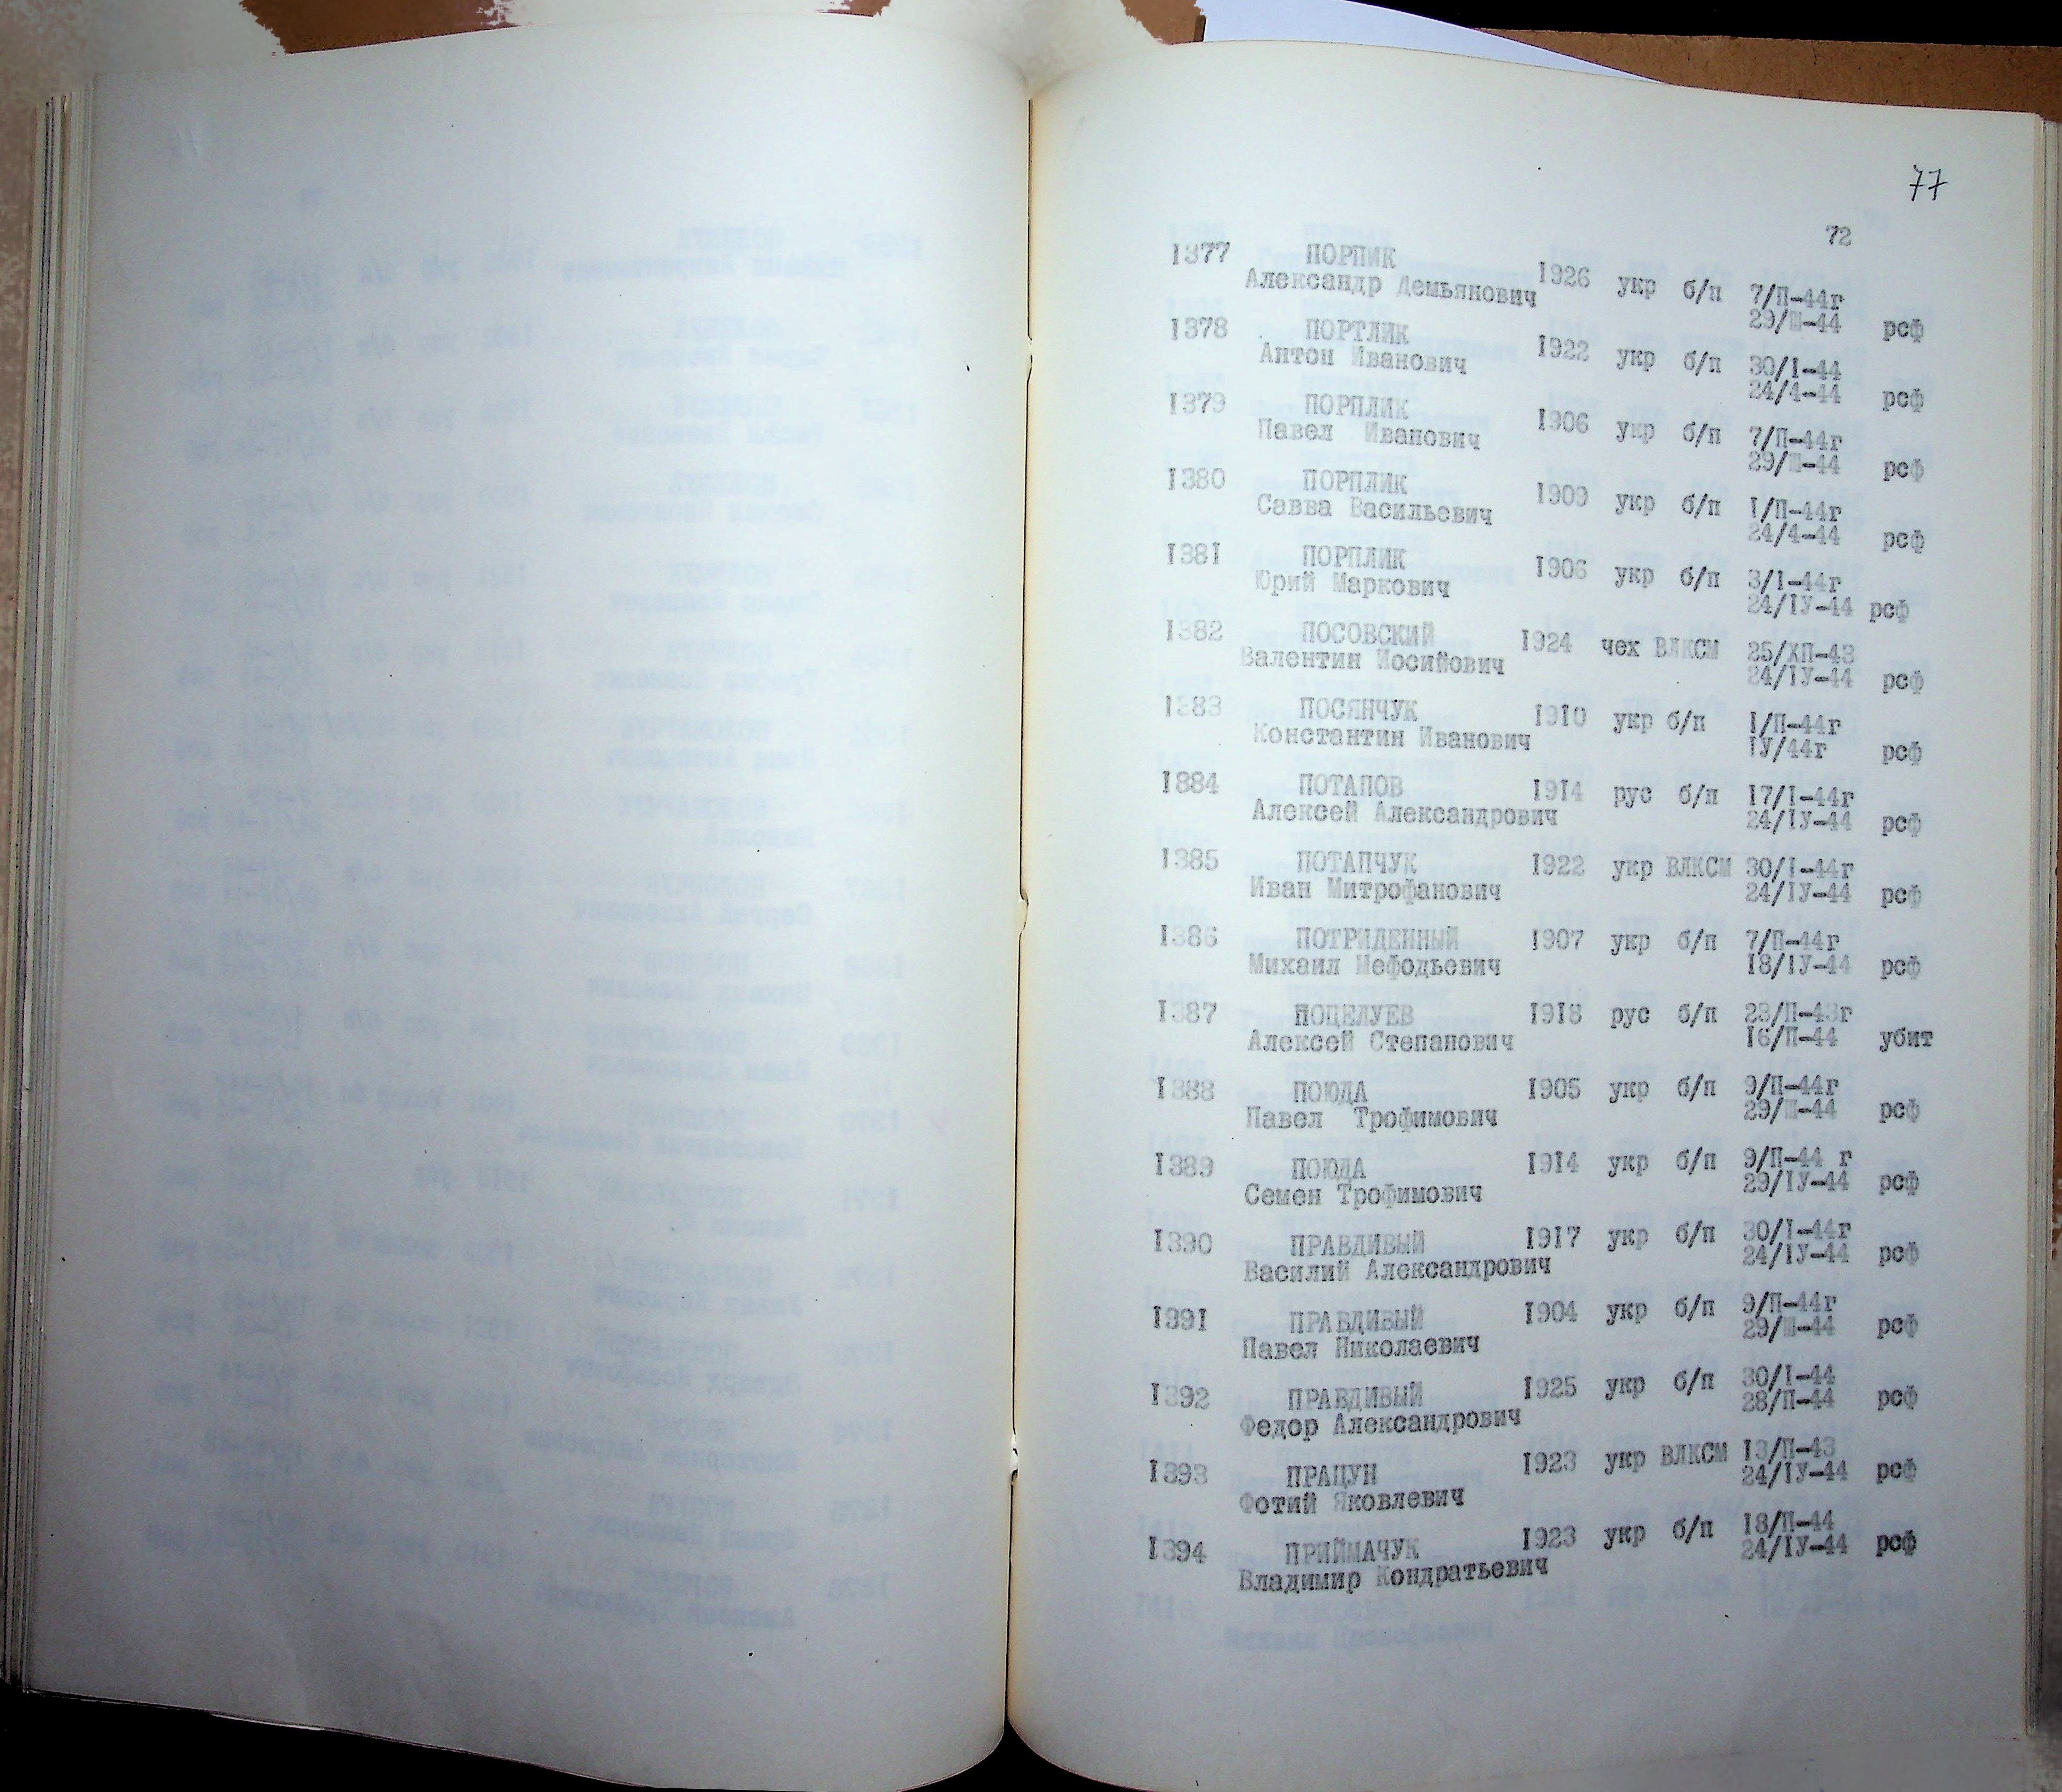 77
72
1377 ПОРПИК 1926 укр б/п 7/П-44г
Александр Демьянович 29/Ш-44 рсф
1378 ПОРТЛИК 1922 укр б/п 30/I-44
Антон Иванович 24/4-44 рсф
1379 ПОРПЛИК 1906 укр б/п 7/П-44г
Павел Иванович 29/Ш-44 рсф
1380 ПОРПЛИК 1909 укр б/п I/П-44г
Савва Васильевич 24/4-44 рсф
1381 ПОРПЛИК 1906 укр б/п 3/I-44г
Юрий Маркович 24/IУ-44 рсф
1382 ПОСОВСКИЙ 1924 чех ВЛКСМ 25/ХП-43
Валентин Иосийович 24/IУ-44 рсф
1383 ПОСЯНЧУК 1910 укр б/п I/П-44г
Константин Иванович IУ/44г рсф
1884 ПОТАПОВ 1914 рус б/п 17/I-44г
Алексей Александрович 24/IУ-44 рсф
1385 ПОТАПЧУК 1922 укр ВЛКСМ 30/I-44г
Иван Митрофанович 24/IУ-44 рсф
1386 ПОТРИДЕННЫЙ 1907 укр б/п 7/П-44г
Михаил Мефодьевич 18/IУ-44 рсф
1387 ПОЦЕЛУЕВ 1918 рус б/п 23/П-43г
Алексей Степанович 16/П-44 убит
1388 ПОЮДА 1905 укр б/п 9/П-44г
Павел Трофимович 29/Ш-44 рсф
1389 ПОЮДА 1914 укр б/п 9/П-44 г
Семен Трофимович 29/IУ-44 рсф
1390 ПРАВДИВЫЙ 1917 укр б/п 30/I-44г
Василий Александрович 24/IУ-44 рсф
1991 ПРАВДИВЫЙ 1904 укр б/п 9/П-44г
Павел Николаевич 29/Ш-44 рсф
1392 ПРАВДИВЫЙ 1925 укр б/п 30/I-44
Федор Александрович 28/П-44 рсф
1393 ПРАЦУН 1923 укр ВЛКСМ 13/П-43
Фотий Яковлевич 24/IУ-44 рсф
1394 ПРИЙМАЧУК 1923 укр б/п 18/П-44
Владимир Кондратьевич 24/IУ-44 рсф